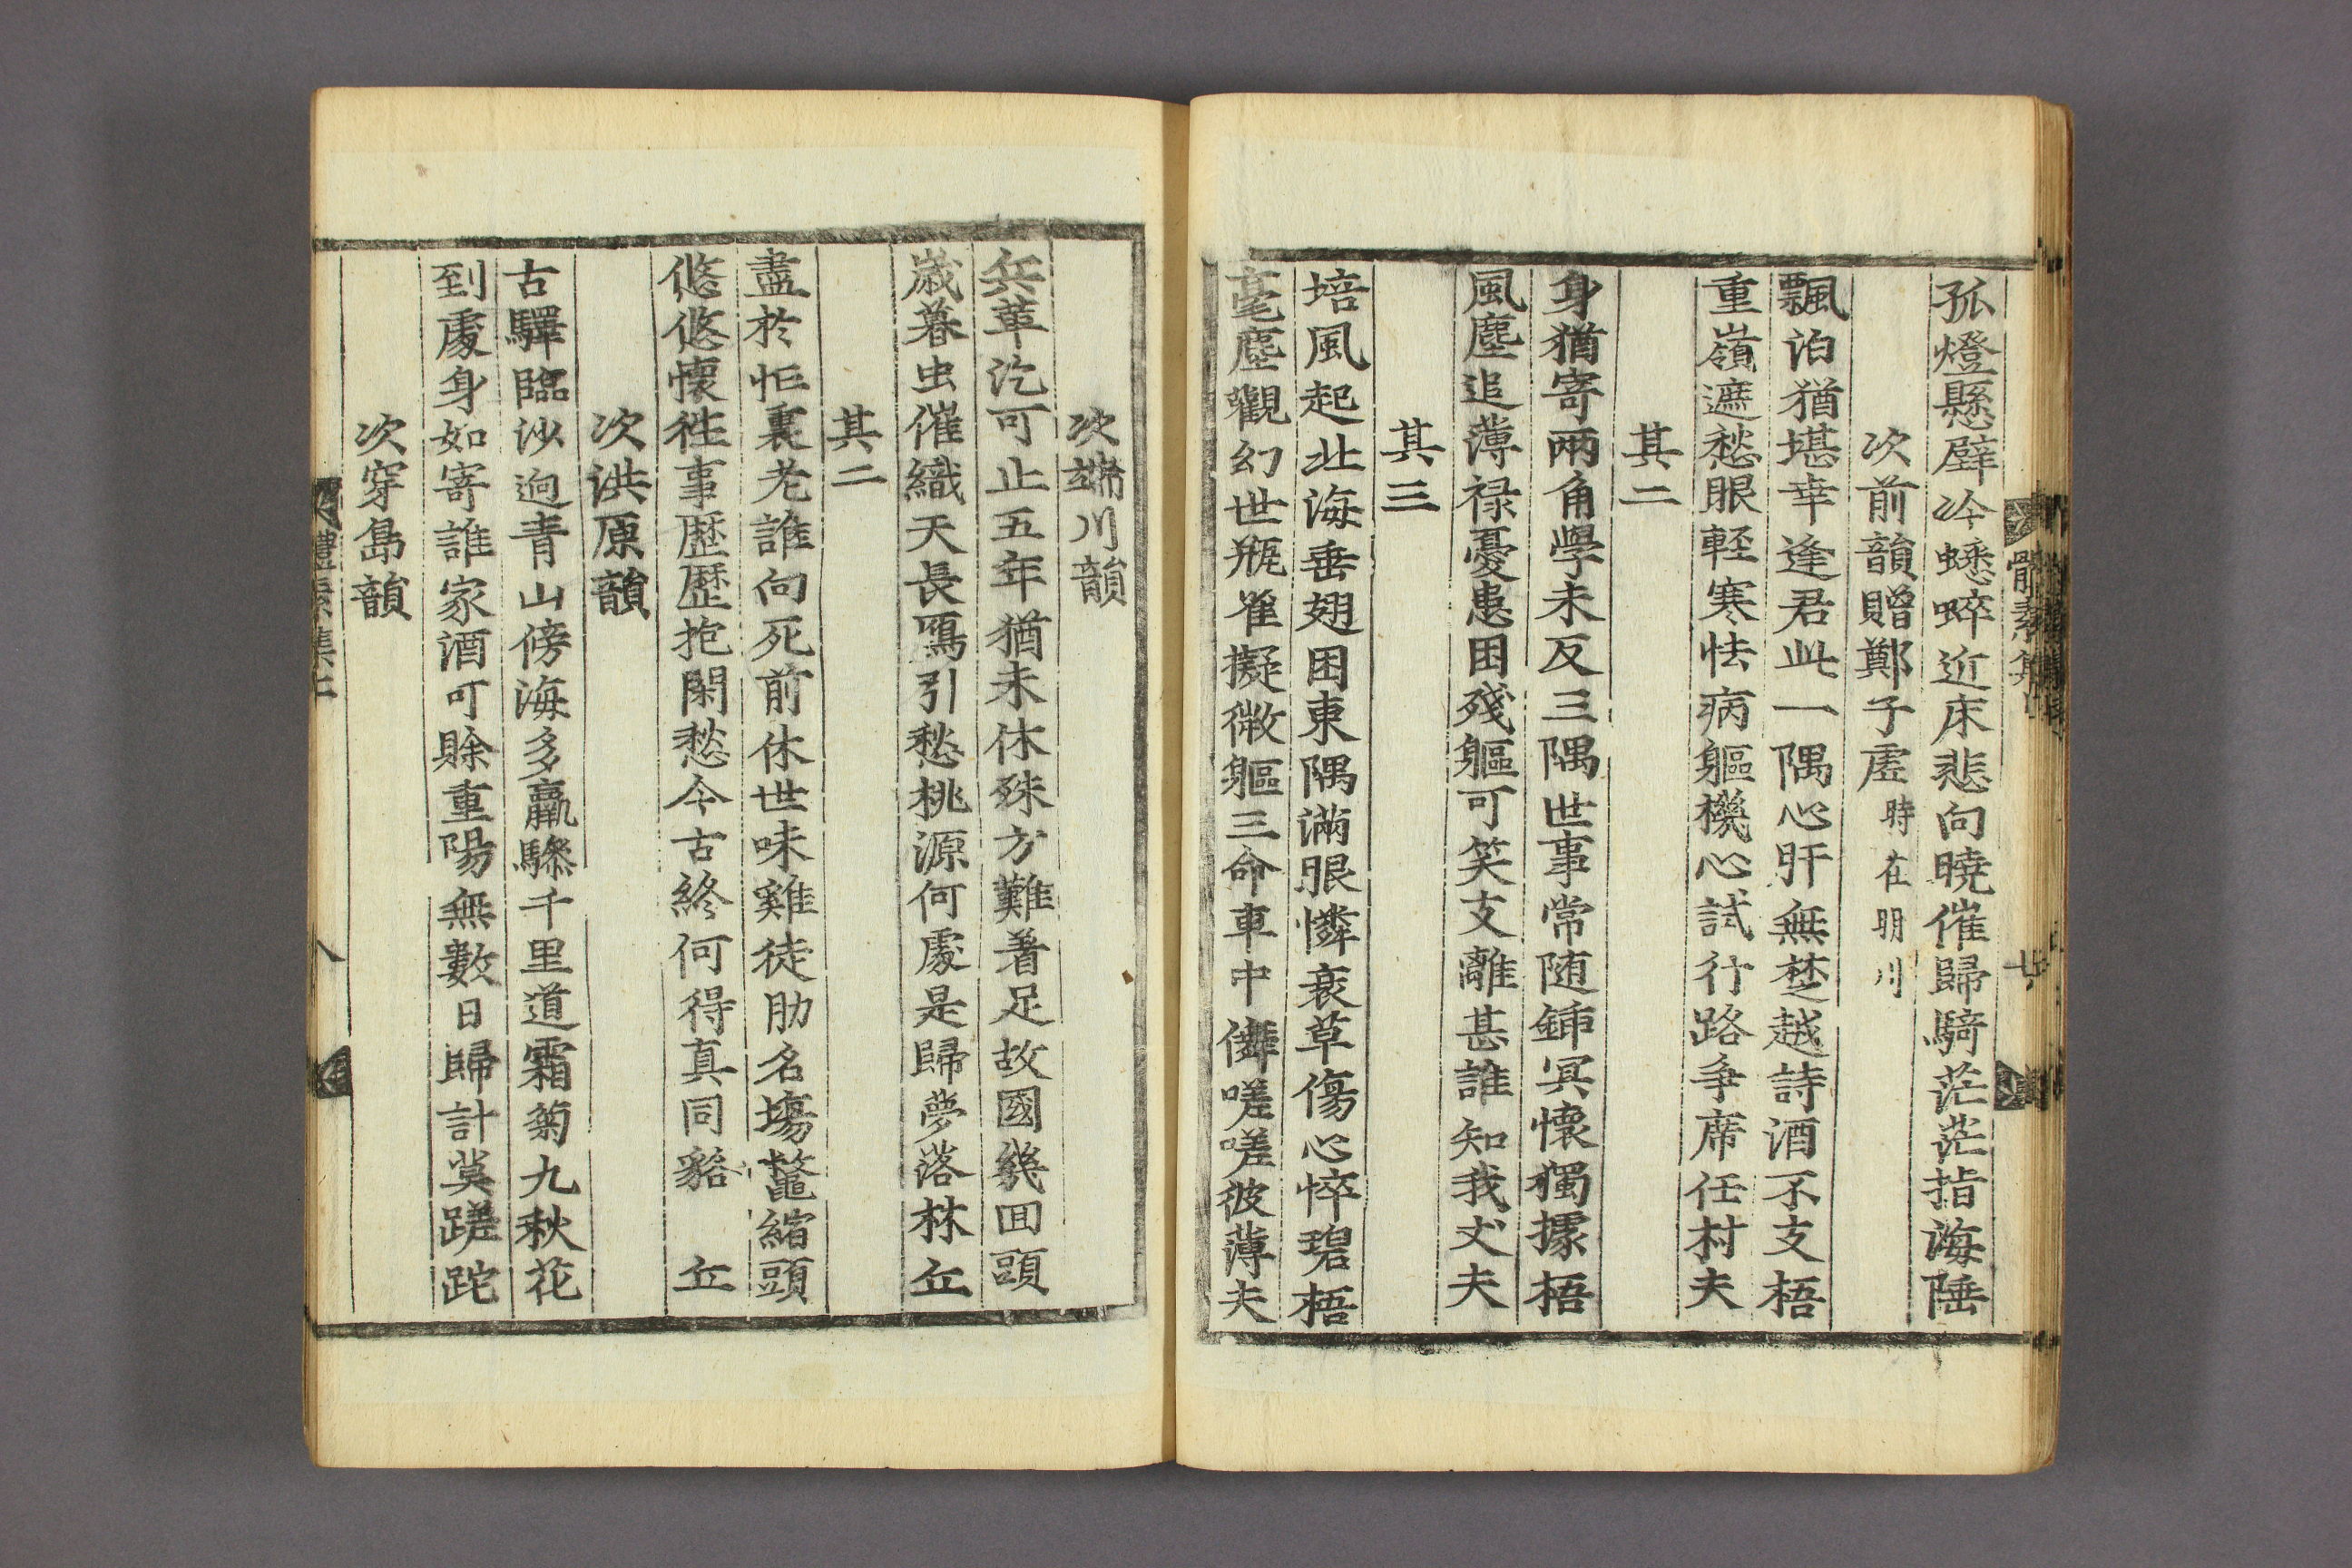 體素集上
七
孤燈懸壁吟蟋蟀近床悲向曉催歸騎茫茫指海陲
次前韻贈鄭子虛時在明川
飄泊猶堪幸逢君此一隅心肝無楚越詩酒不支梧
重嶺遮愁眼輕寒怯病軀機心試行路爭席任村夫
其二
身猶寄兩角學未反三隅世事常随鍤冥懷獨據梧
風塵追薄禄憂患困殘軀可笑支離甚誰知我丈夫
其三
培風起北海垂翅困東隅滿眼憐衰草傷心悴碧梧
毫塵觀幻世瓶雀擬微軀三命車中僂嗟嗟彼薄夫
次端川韻
兵革汔可止五年猶未休殊方難着足故國幾回頭
歲暮虫催織天長鴈引愁桃源何處是歸夢落林丘
其二
盡於忙裏老誰向死前休世味雞徒肋名塲鼈縮頭
悠悠懷徃事歷歷抱閑愁今古終何得真同貉一丘
次洪原韻
古驛臨沙逈青山傍海多羸驂千里道霜菊九秋花
到處身如寄誰家酒可賖重陽無數日歸計莫蹉跎
次穿島韻
體素集上
八